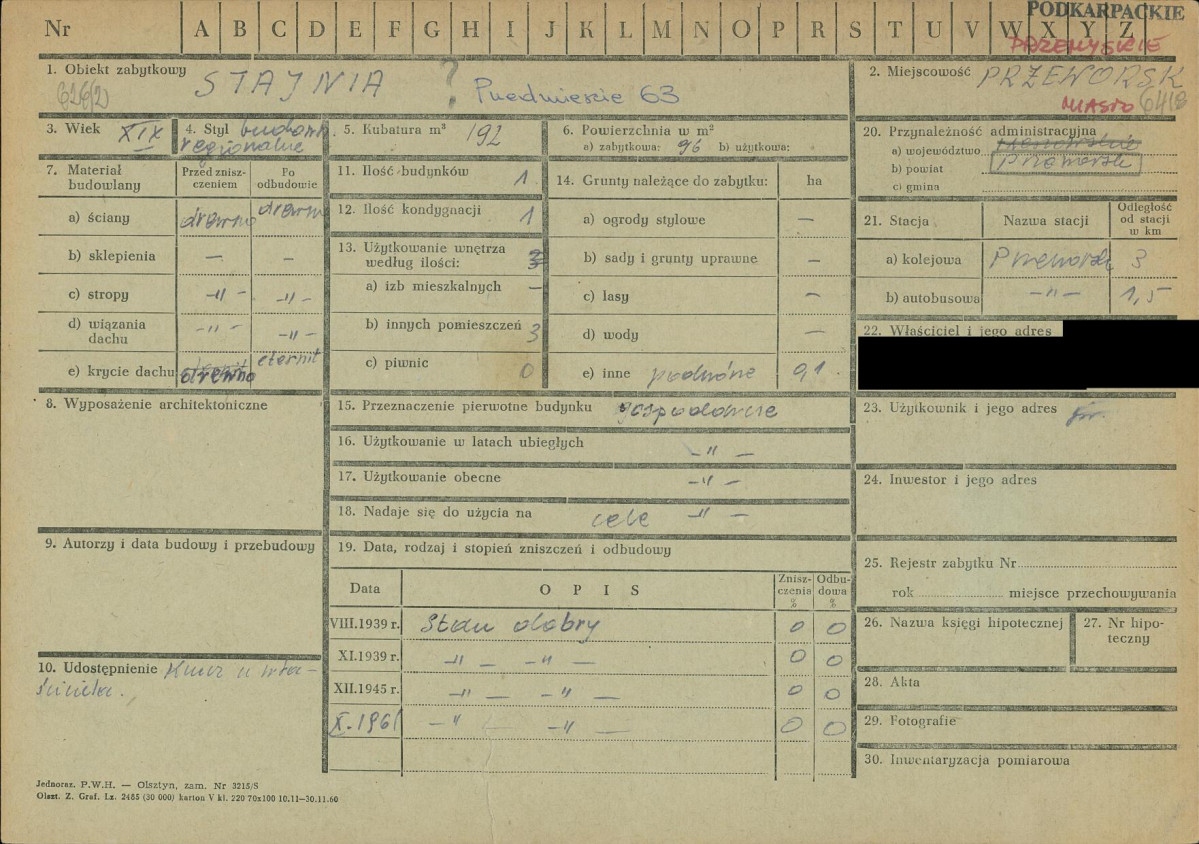 PODKARPACKIE
Nr A B C D E F G H I J K L M N O P R S T U V W X Y Z
PRZEMYSKIE
1. Obiekt zabytkowy STAJNIA ? Przedmieście 63
626(2)
2. Miejscowość PRZEWORSK
MIASTO 6418
3. Wiek XIX
4. Styl budown. regionalne
5. Kubatura m³ 192
6. Powierzchnia w m²
a) zabytkowa: 96 b) użytkowa:
7. Materiał budowlany
Przed zniszczeniem
Po odbudowie
a) ściany drewno drewno
b) sklepienia — —
c) stropy —"— —"—
d) wiązania dachu —"— —"—
e) krycie dachu drewno eternit
8. Wyposażenie architektoniczne
9. Autorzy i data budowy i przebudowy
10. Udostępnienie Klucz u wła-
ściciela.
11. Ilość budynków 1
12. Ilość kondygnacji 1
13. Użytkowanie wnętrza według ilości: 3
a) izb mieszkalnych —
b) innych pomieszczeń 3
c) piwnic 0
14. Grunty należące do zabytku: ha
a) ogrody stylowe —
b) sady i grunty uprawne —
c) lasy —
d) wody —
e) inne podwórze 0,1
15. Przeznaczenie pierwotne budynku gospodarcze
16. Użytkowanie w latach ubiegłych —"—
17. Użytkowanie obecne —"—
18. Nadaje się do użycia na cele —"—
19. Data, rodzaj i stopień zniszczeń i odbudowy
Data OPIS Zniszczenia % Odbudowa %
VIII.1939 r. Stan dobry 0 0
XI.1939 r. —"— —"— 0 0
XII.1945 r. —"— —"— 0 0
X.1961 —"— —"— 0 0
20. Przynależność administracyjna
a) województwo
b) powiat Przeworsk
c) gmina
21. Stacja Nazwa stacji Odległość od stacji w km
a) kolejowa Przeworsk 3
b) autobusowa —"— 1,5
22. Właściciel i jego adres
23. Użytkownik i jego adres jw.
24. Inwestor i jego adres
25. Rejestr zabytku Nr
rok miejsce przechowywania
26. Nazwa księgi hipotecznej
27. Nr hipoteczny
28. Akta
29. Fotografie
30. Inwentaryzacja pomiarowa
Jednoraz. P.W.H. — Olsztyn, zam. Nr 3215/S
Olszt. Z. Graf. Lz. 2485 (30 000) karton V kl. 220 70x100 10.11—30.11.60